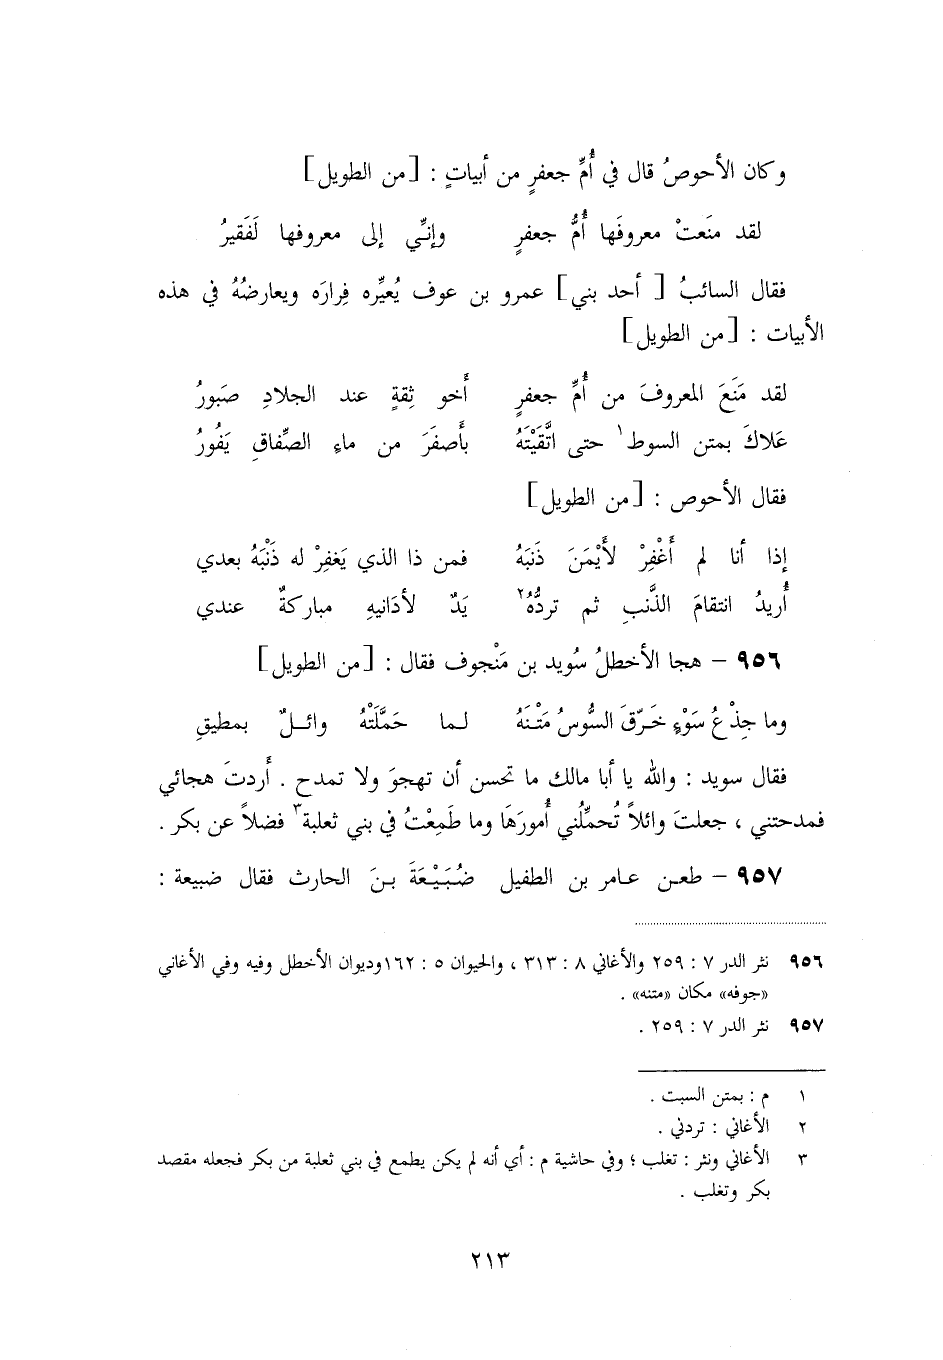 وكان الأحوصُ قال في أُمِّ جعفرٍ من أبياتٍ : [من الطويل]
لقد منَعتْ معروفَها أُمُّ جعفرٍ وإنِّي إلى معروفها لَفَقيرُ
فقال السائبُ [ أحد بني] عمرو بن عوف يُعيِّره فِرارَه ويعارضُهُ في هذه
الأبيات : [من الطويل]
لقد مَنَعَ المعروفَ من أُمِّ جعفرٍ أَخو ثِقةٍ عند الجلادِ صَبورُ
عَلاكَ بمتن السوط١ حتى اتَّقَيْتَهُ بأَصفَرَ من ماءِ الصِّفاقِ يَفُورُ
فقال الأحوص : [من الطويل]
إذا أنا لم أَغْفِرْ لأَيْمَنَ ذَنبَهُ فمن ذا الذي يَغفِرْ له ذَنْبَهُ بعدي
أُريدُ انتقامَ الذَّنبِ ثم تردُّهُ٢ يَدٌ لأدَانيهِ مباركةٌ عندي
٩٥٦ – هجا الأخطلُ سُويد بن مَنْجوف فقال : [من الطويل]
وما جِذْعُ سَوْءٍ خَرّقَ السُّوسُ مَتْنَهُ لما حَمَّلَتْهُ وائلٌ بمطيقِ
فقال سويد : والله يا أبا مالك ما تحسن أن تهجوَ ولا تمدح . أَردتَ هجائي
فمدحتني ، جعلتَ وائلاً تُحمِّلُني أُمورَهَا وما طَمِعْتُ في بني ثعلبة٣ فضلاً عن بكر .
٩٥٧ – طعن عامر بن الطفيل ضُبَيْعَةَ بنَ الحارث فقال ضبيعة :
٩٥٦ نثر الدر ٧ : ٢٥٩ والأغاني ٨ : ٣١٣ ، والحيوان ٥ : ١٦٢وديوان الأخطل وفيه وفي الأغاني
«جوفه» مكان «متنه» .
٩٥٧ نثر الدر ٧ : ٢٥٩ .
١ م : بمتن السبت .
٢ الأغاني : تردني .
٣ الأغاني ونثر : تغلب ؛ وفي حاشية م : أي أنه لم يكن يطمع في بني ثعلبة من بكر فجعله مقصد
بكر وتغلب .
٢١٣